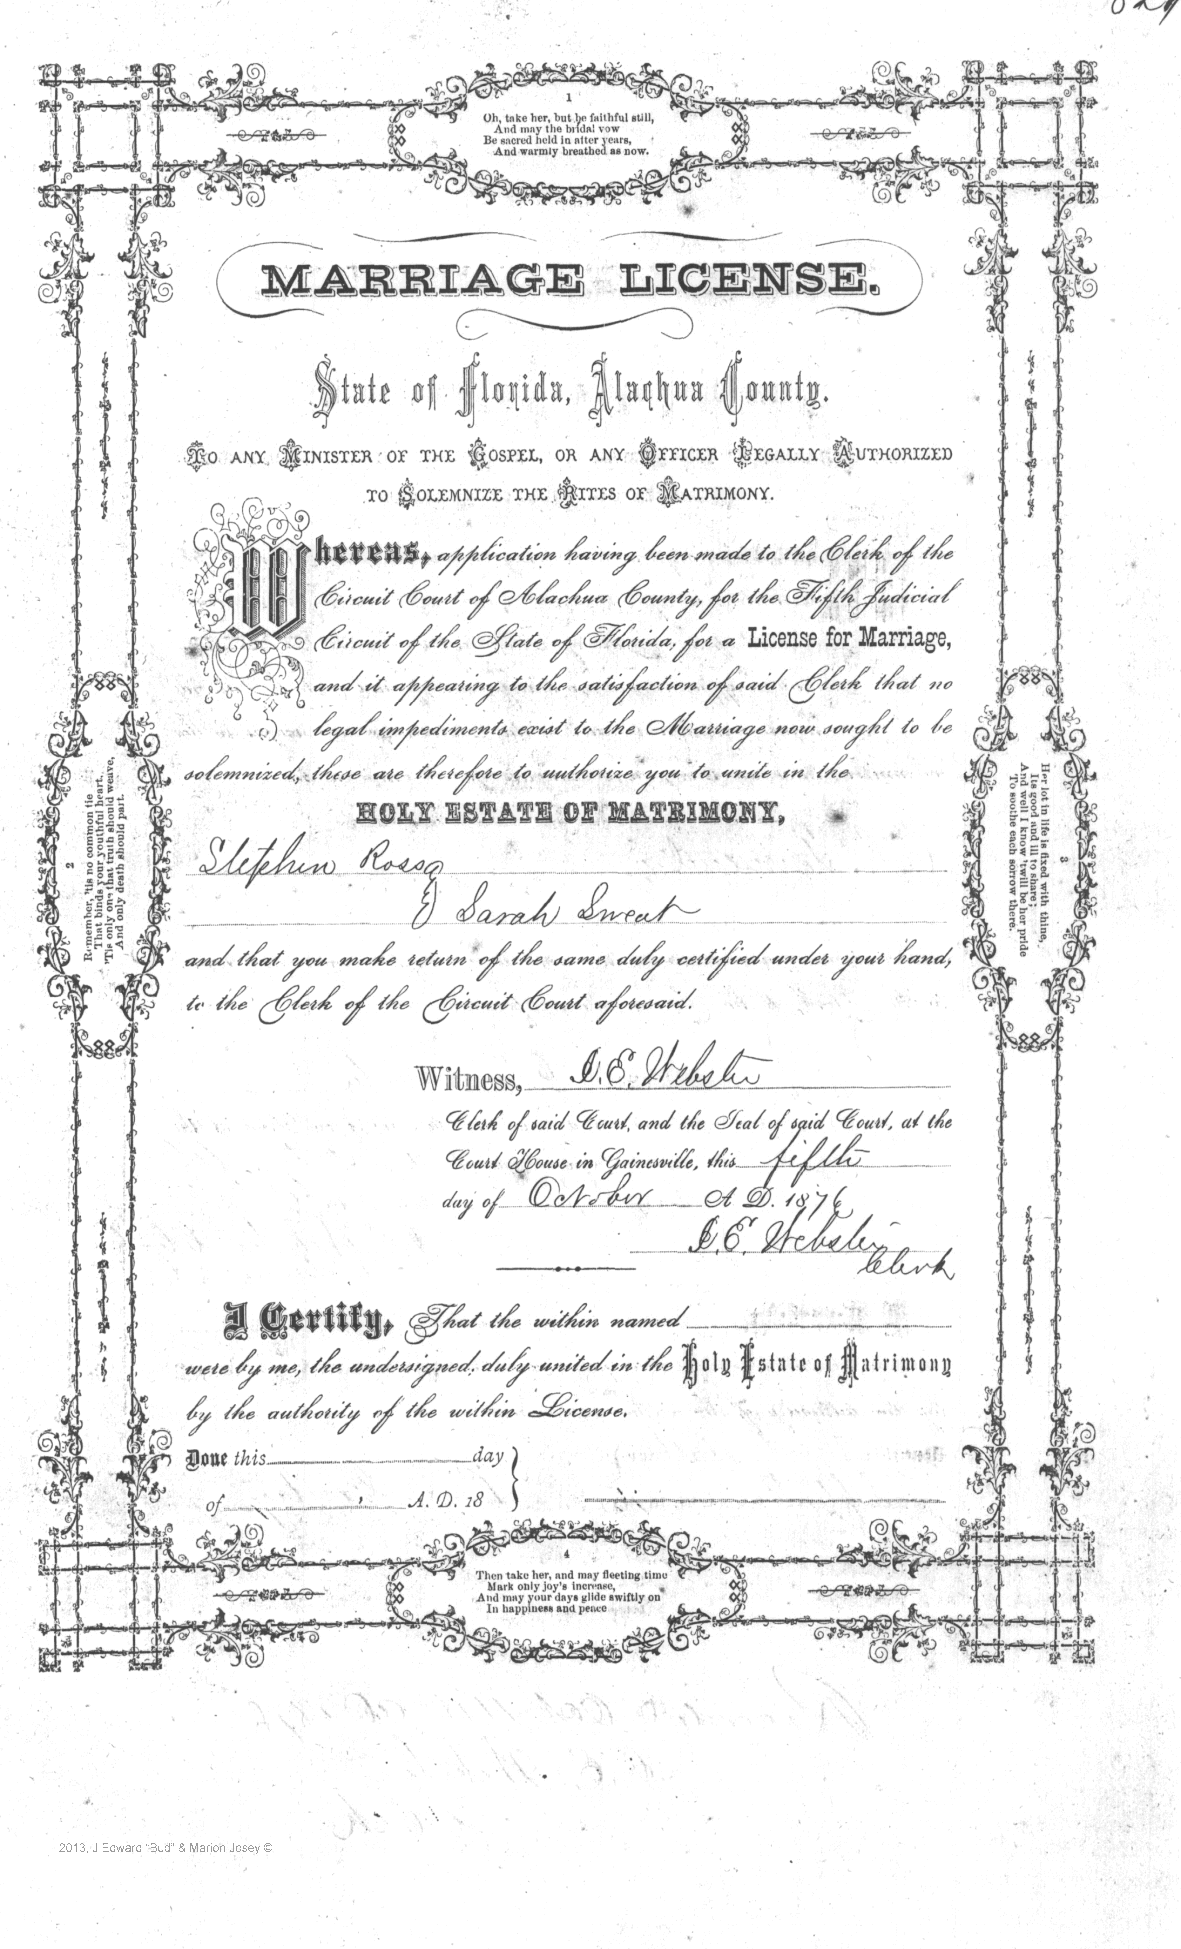 1
Oh, take her, but be faithful still,
And may the bridal vow
Be sacred held in after years,
And warmly breathed as now.
MARRIAGE LICENSE.
State of Florida, Alachua County.
TO ANY MINISTER OF THE GOSPEL, OR ANY OFFICER LEGALLY AUTHORIZED
TO SOLEMNIZE THE RITES OF MATRIMONY.
Whereas, application having been made to the Clerk of the
Circuit Court of Alachua County, for the Fifth Judicial
Circuit of the State of Florida, for a License for Marriage,
and it appearing to the satisfaction of said Clerk that no
legal impediments exist to the Marriage now sought to be
solemnized, these are therefore to authorize you to unite in the
HOLY ESTATE OF MATRIMONY,
Stephen Ross
& Sarah Sweat
and that you make return of the same duly certified under your hand,
to the Clerk of the Circuit Court aforesaid.
Witness, I. E. Webster
Clerk of said Court, and the Seal of said Court, at the
Court House in Gainesville, this fifth
day of October A D. 1876
I. E. Webster
Clerk
I Certify, That the within named
were by me, the undersigned, duly united in the Holy Estate of Matrimony
by the authority of the within License.
Done this day
of A. D. 18
2
Remember, 'tis no common tie
That binds your youthful heart,
'Tis only one that truth should weave,
And only death should part.
3
Her lot in life is fixed with thine,
Its good and ill to share;
And well I know 'twill be her pride
To soothe each sorrow there.
4
Then take her, and may fleeting time
Mark only joy's increase,
And may your days glide swiftly on
In happiness and peace
2013, J Edward "Bud" & Marion Josey ©